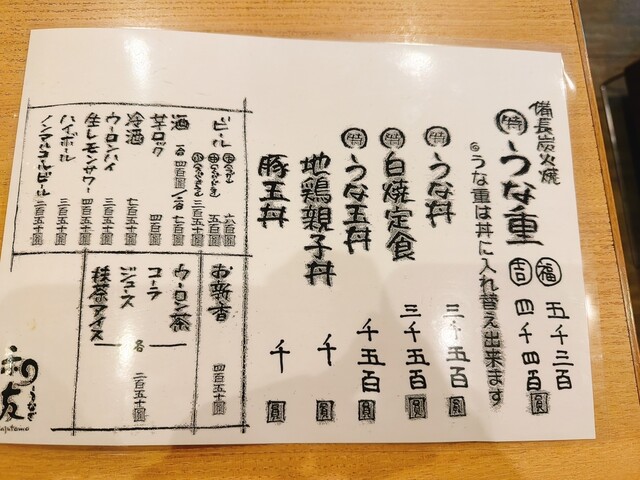 備長炭火焼
特 うな重 福 五千三百圓
吉 四千四百圓
◎うな重は丼に入れ替え出来ます
特 うな丼 三千五百圓
特 白焼定食 三千五百圓
特 うな玉丼 千五百圓
地鶏親子丼 千圓
豚玉丼 千圓
ビール
六百五十圓
五百圓
三百五十圓
酒
辛口ック 四百圓
冷酒 七百五十圓
ウーロンハイ 三百五十圓
生レモンサワー 四百五十圓
ハイボール 三百五十圓
ノンアルコールビール 三百五十圓
お新香 四百五十圓
ウーロン茶
コーラ
ジュース
抹茶アイス
各 二百五十圓
和友
うなぎ